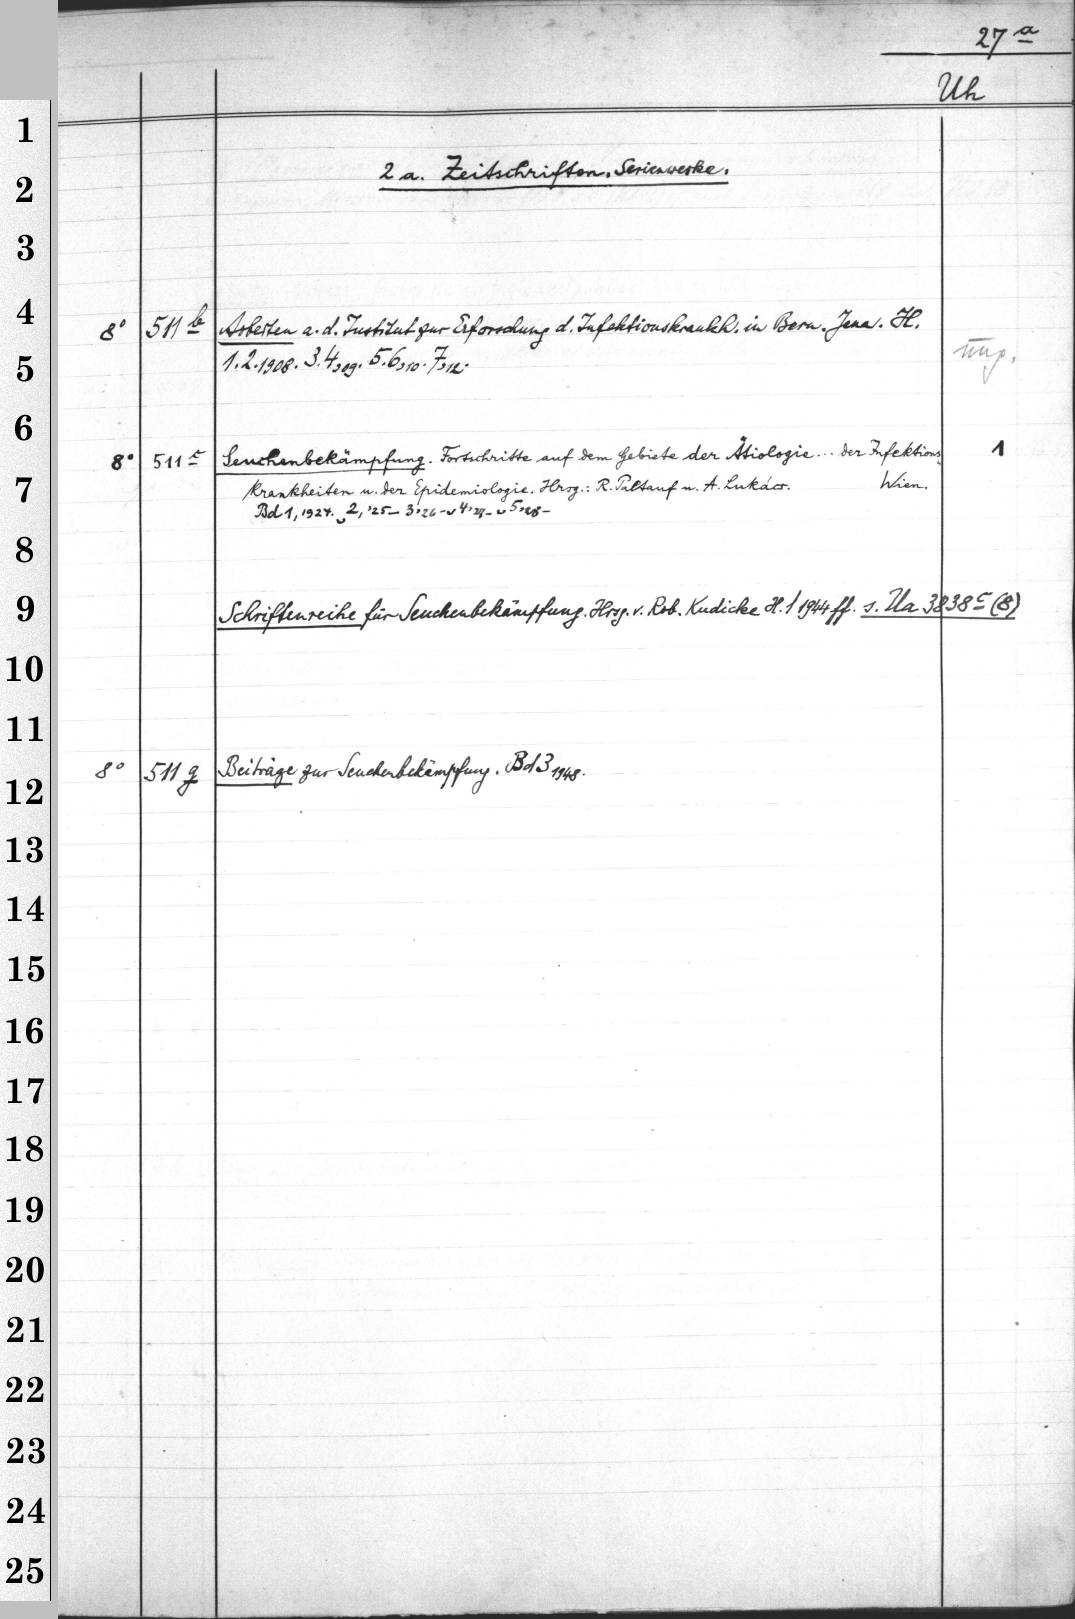 27 a
Uh
1
2 2 a. Zeitschriften. Serienwerke.
3
4 8° 511 b Arbeiten a. d. Institut zur Erforschung d. Infektionskrankh. in Bern. Jena. H.
5 1.2.1908. 3.4,09. 5.6,10. 7,12.
6
8° 511 c Seuchenbekämpfung. Fortschritte auf dem Gebiete der Ätiologie ... der Infektions- 1
7 krankheiten u. der Epidemiologie. Hrsg.: R. Paltauf u. A. Lukács. Wien.
Bd 1, 1924. 2, '25- 3,'26- 4,'27- 5,'28-
8
9 Schriftenreihe für Seuchenbekämpfung. Hrsg. v. Rob. Kudicke H. 1 1944 ff. s. Ua 3838 c (8)
10
11
8° 511 g Beiträge zur Seuchenbekämpfung. Bd 3 1948.
12
13
14
15
16
17
18
19
20
21
22
23
24
25